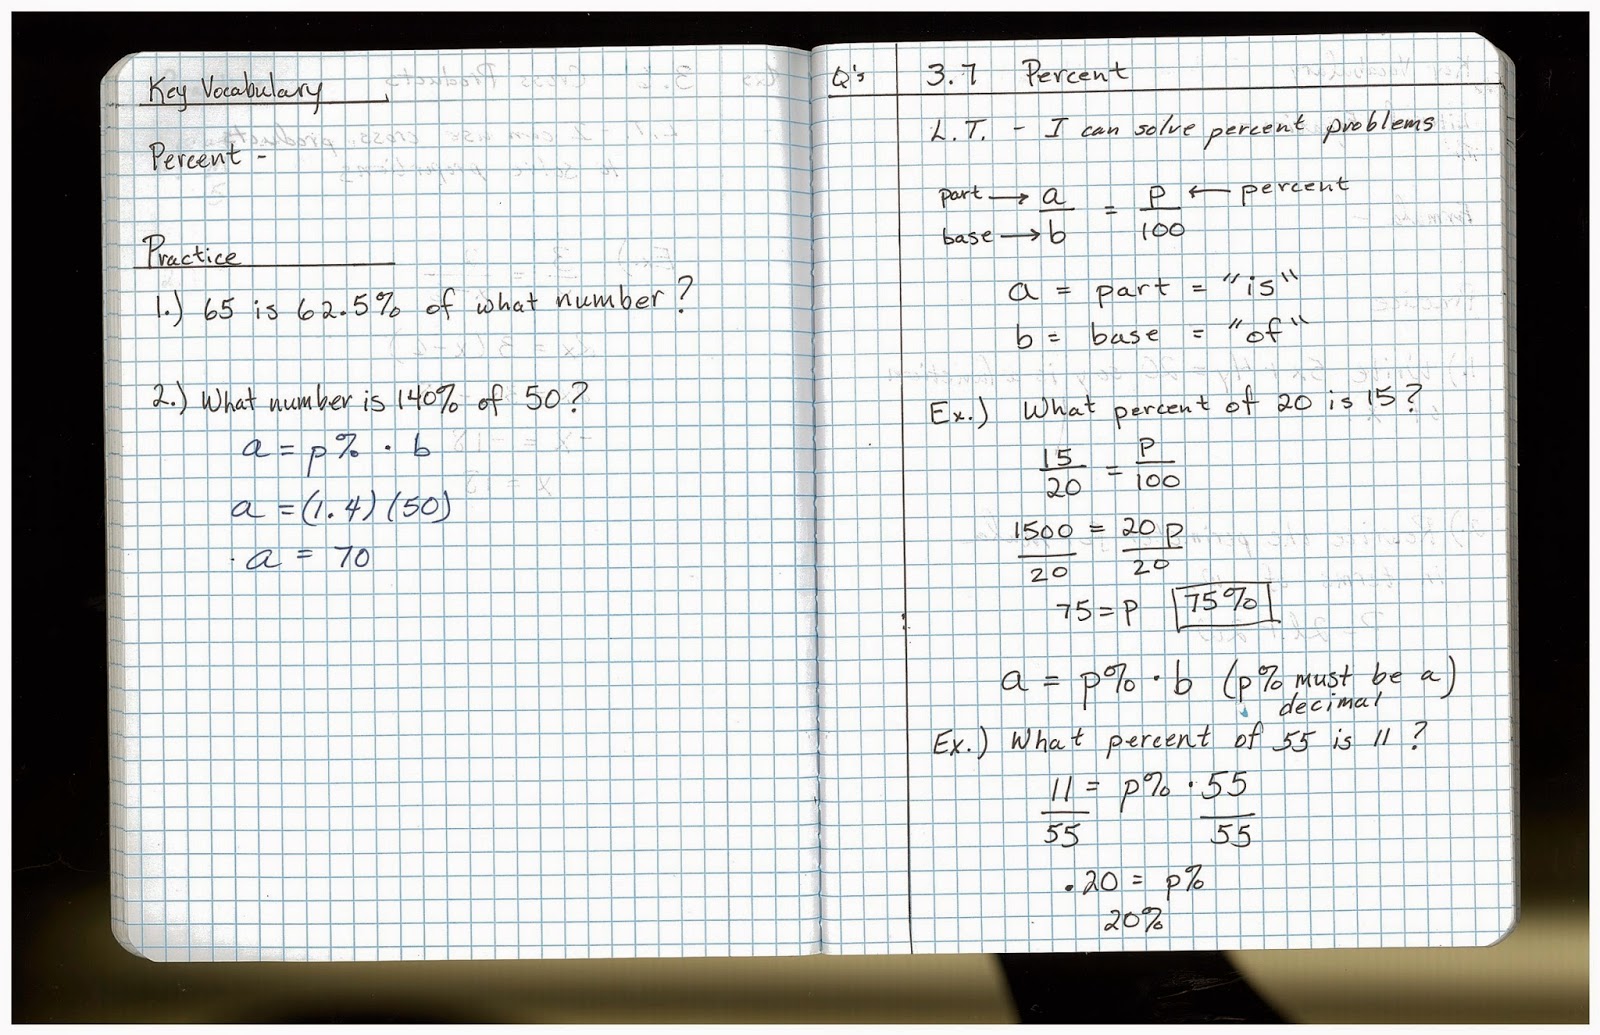 Key Vocabulary
Percent -
Practice
1.) 65 is 62.5% of what number?
2.) What number is 140% of 50?
a = p% · b
a = (1.4)(50)
a = 70
Q's
3.7 Percent
L.T. - I can solve percent problems
part → a = p ← percent
base → b 100
a = part = "is"
b = base = "of"
Ex.) What percent of 20 is 15?
15 = p
20 100
1500 = 20p
20 20
75 = p 75%
a = p% · b (p% must be a)
decimal
Ex.) What percent of 55 is 11?
11 = p% · 55
55 55
.20 = p%
20%